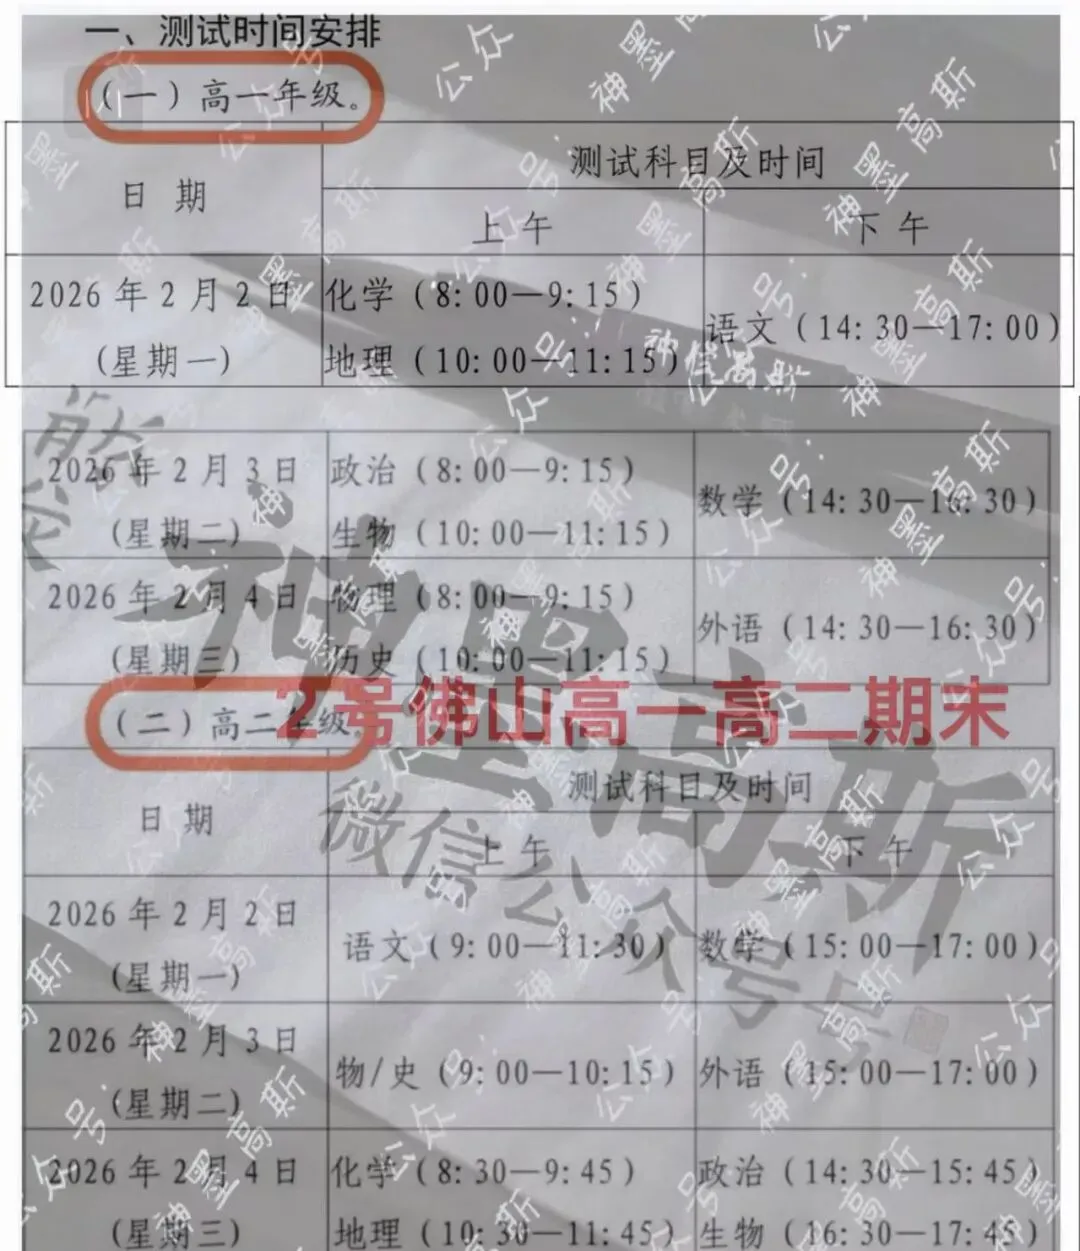 一、测试时间安排
（一）高一年级。
日 期
测试科目及时间
上 午
下 午
2026 年 2 月 2 日
(星期一)
化学（8: 00—9: 15）
地理（10: 00—11: 15）
语文（14: 30—17: 00）
2026 年 2 月 3 日
(星期二)
政治（8: 00—9: 15）
生物（10: 00—11: 15）
数学（14: 30—16: 30）
2026 年 2 月 4 日
(星期三)
物理（8: 00—9: 15）
历史（10: 00—11: 15）
外语（14: 30—16: 30）
2号佛山高一高二期末
（二）高二年级。
日 期
测试科目及时间
上 午
下 午
2026 年 2 月 2 日
(星期一)
语文（9: 00—11: 30）
数学（15: 00—17: 00）
2026 年 2 月 3 日
(星期二)
物/史（9: 00—10: 15）
外语（15: 00—17: 00）
2026 年 2 月 4 日
(星期三)
化学（8: 30—9: 45）
地理（10: 30—11: 45）
政治（14: 30—15: 45）
生物（16: 30—17: 45）
神墨高斯
微信公众号
公众号：神墨高斯